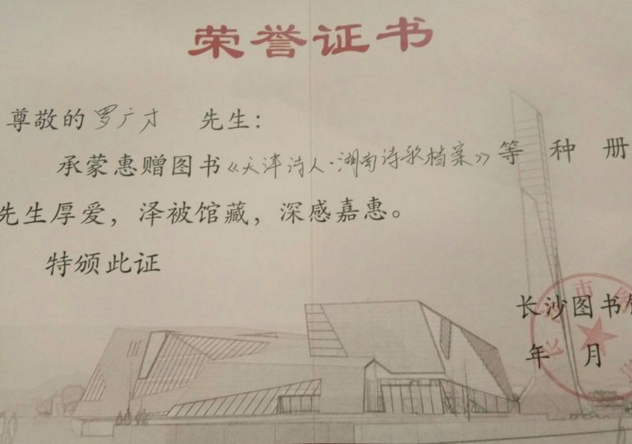 荣誉证书
尊敬的罗广才 先生：
承蒙惠赠图书《天津诗人·湖南诗歌档案》等 种 册
先生厚爱，泽被馆藏，深感嘉惠。
特颁此证
长沙图书馆
年 月